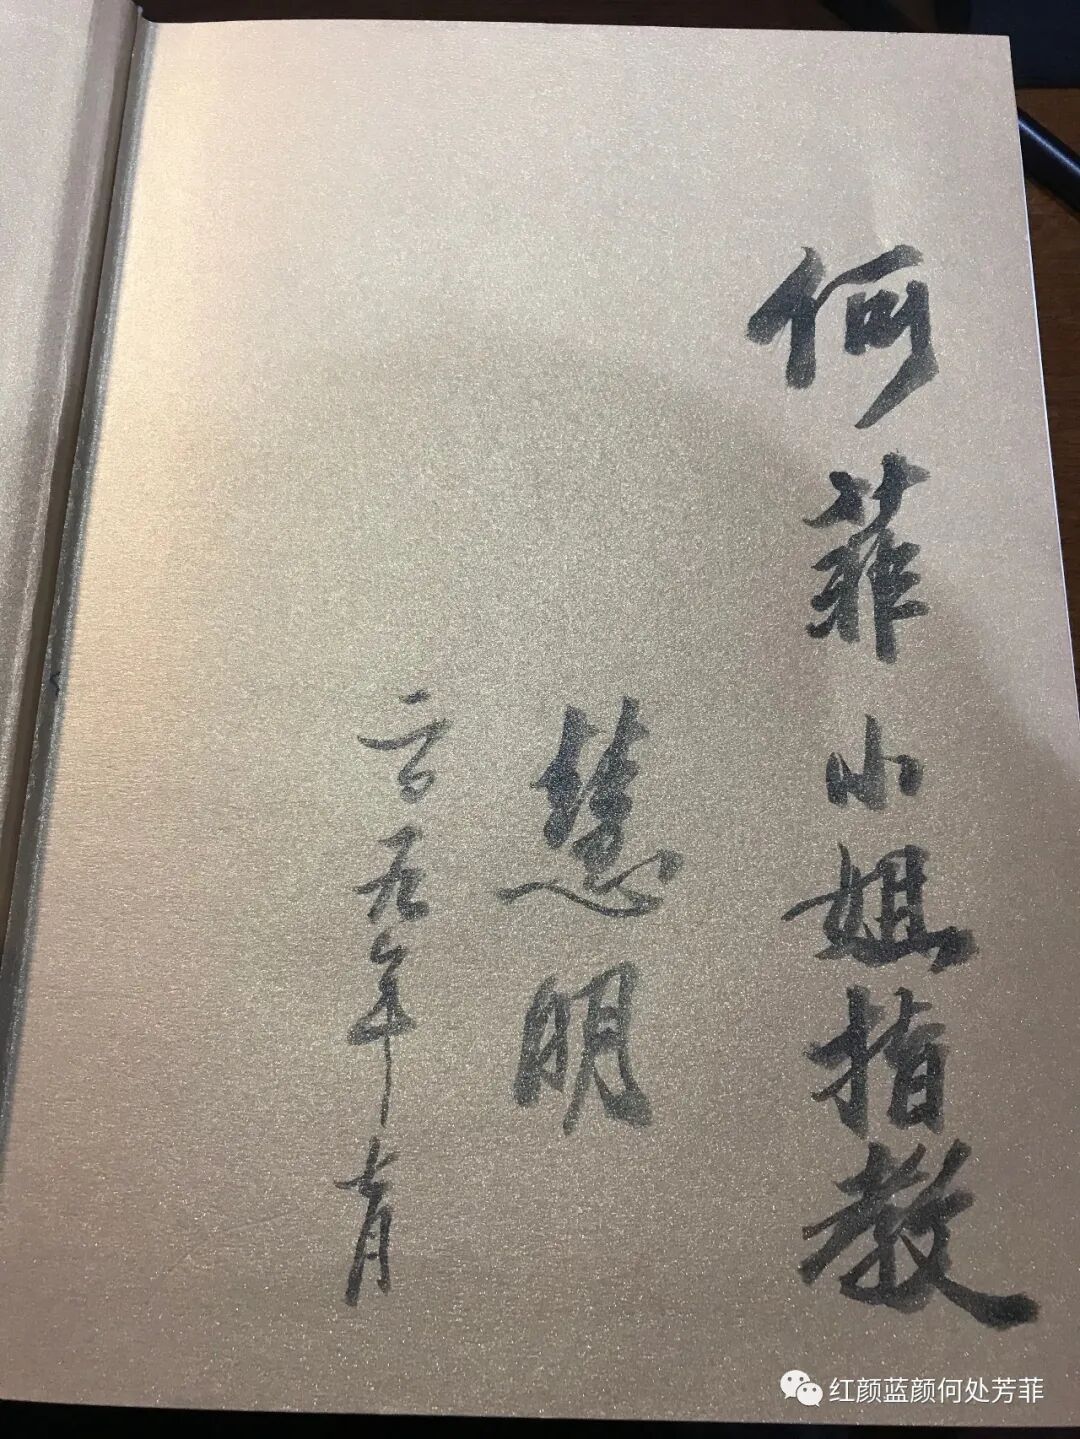 何菲小姐指教
慧明
二〇一九年七月
红颜蓝颜何处芳菲